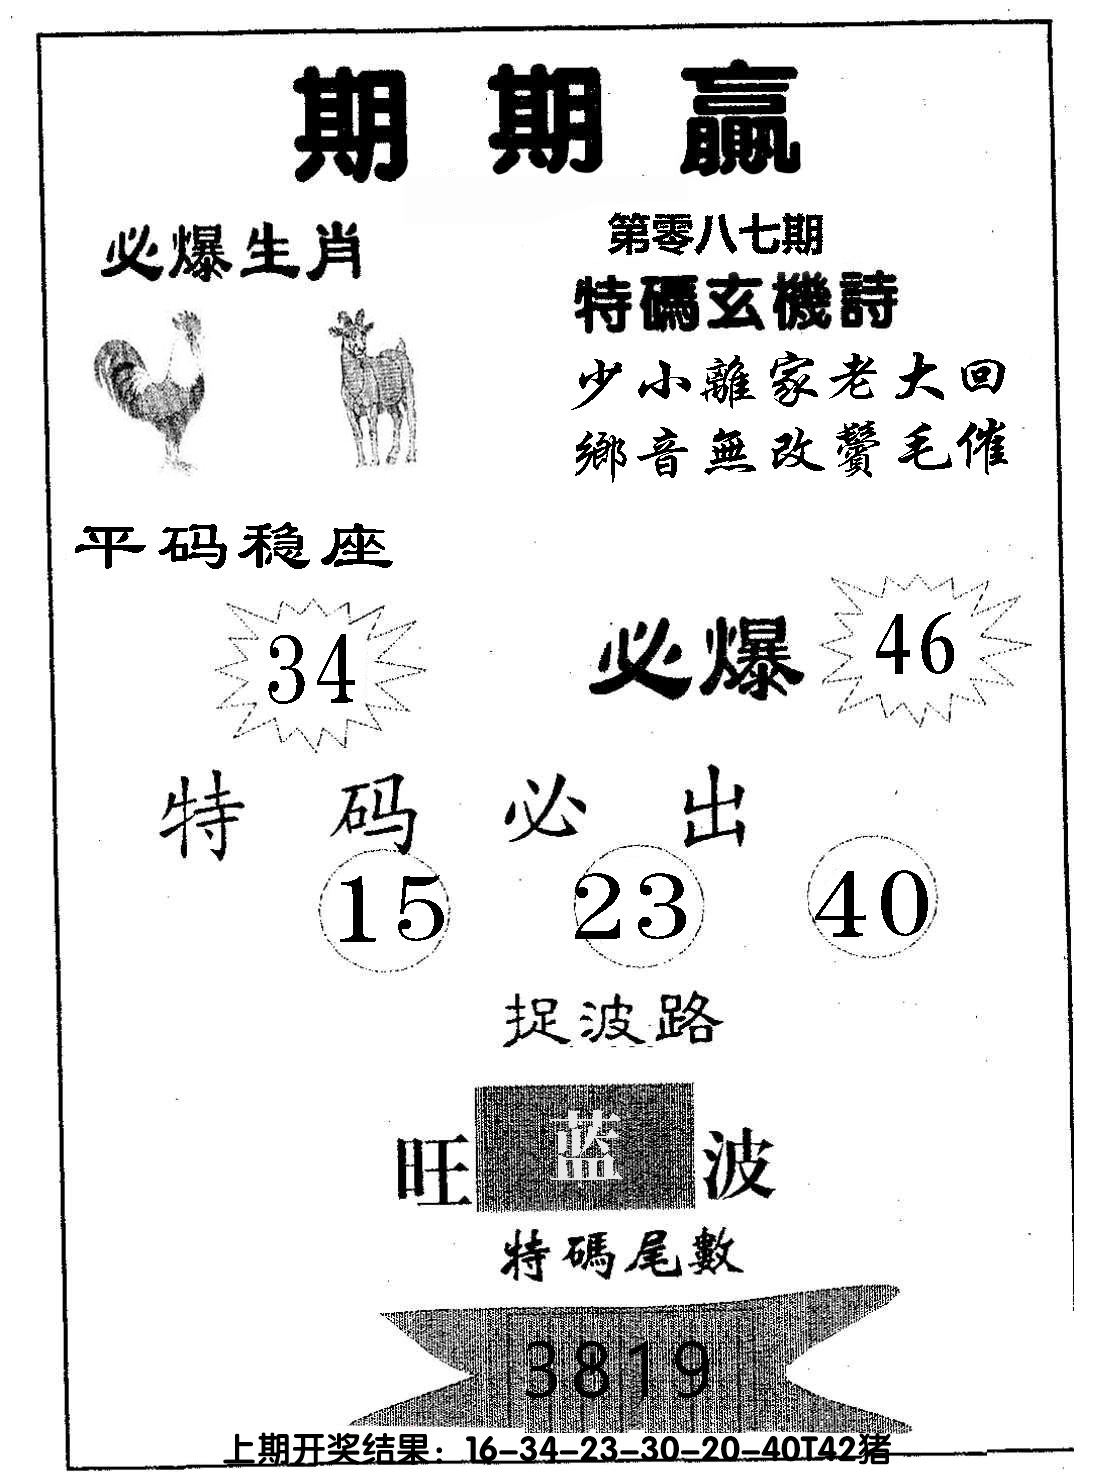 期期赢
必爆生肖
第零八七期
特碼玄機詩
少小離家老大回
鄉音無改鬢毛催
平码稳座
34
必爆 46
特码必出
15 23 40
捉波路
旺蓝波
特碼尾數
3819
上期开奖结果：16-34-23-30-20-40T42猪